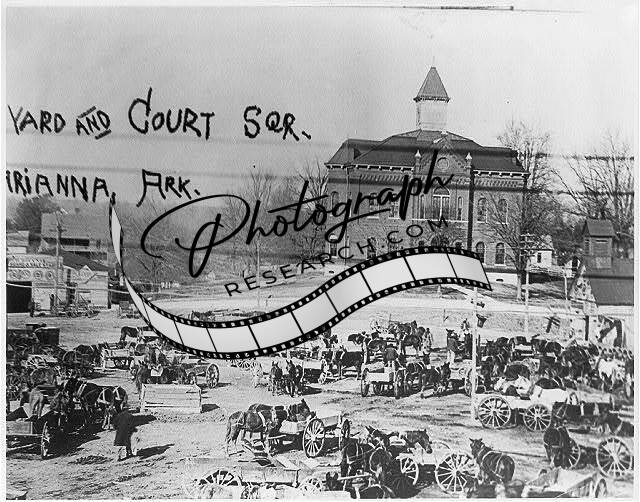 YARD AND COURT SQR.
ARIANNA, ARK.
Photograph
RESEARCH.COM